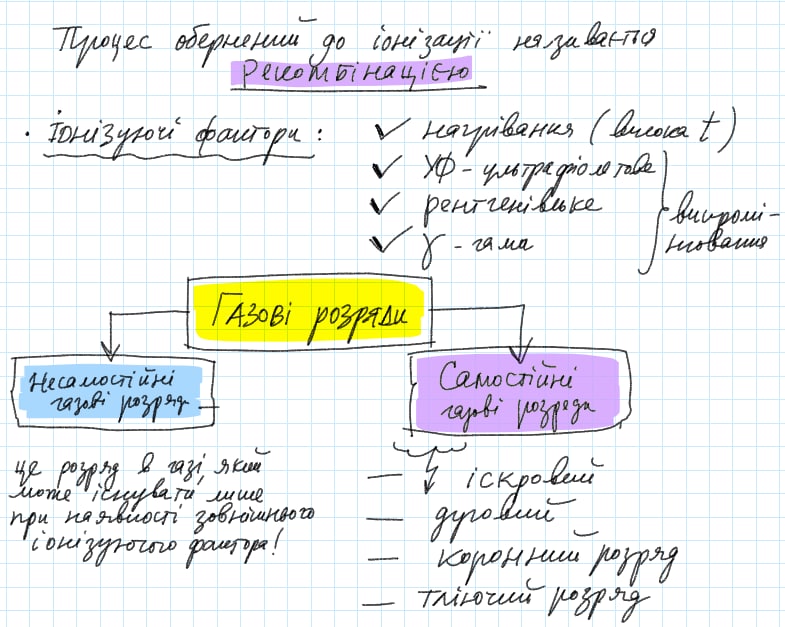 Процес обернений до іонізації називається
рекомбінацією
· Іонізуючі фактори:
✓ нагрівання (висока t)
✓ УФ - ультрафіолетове
✓ рентгенівське
✓ γ - гама
випромі-
нювання
Газові розряди
Несамостійні
газові розряди
Самостійні
газові розряди
це розряд в газі, який
може існувати лише
при наявності зовнішнього
іонізуючого фактора!
— іскровий
— дуговий
— коронний розряд
— тліючий розряд